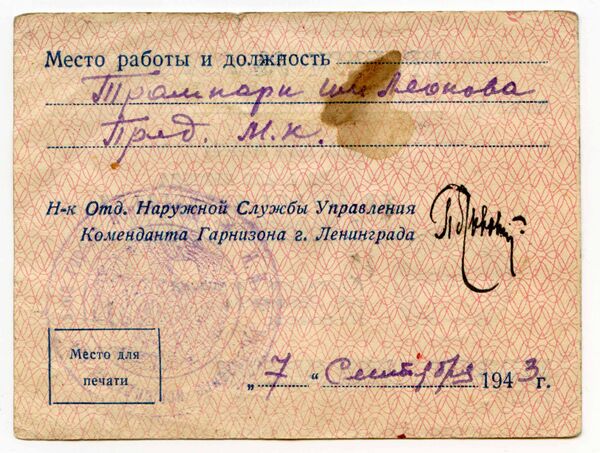 Место работы и должность
Трампарк им Леонова
Пред. М.К.
Н-к Отд. Наружной Службы Управления
Коменданта Гарнизона г. Ленинграда
Место для
печати
„7“ Сентября 1943 г.